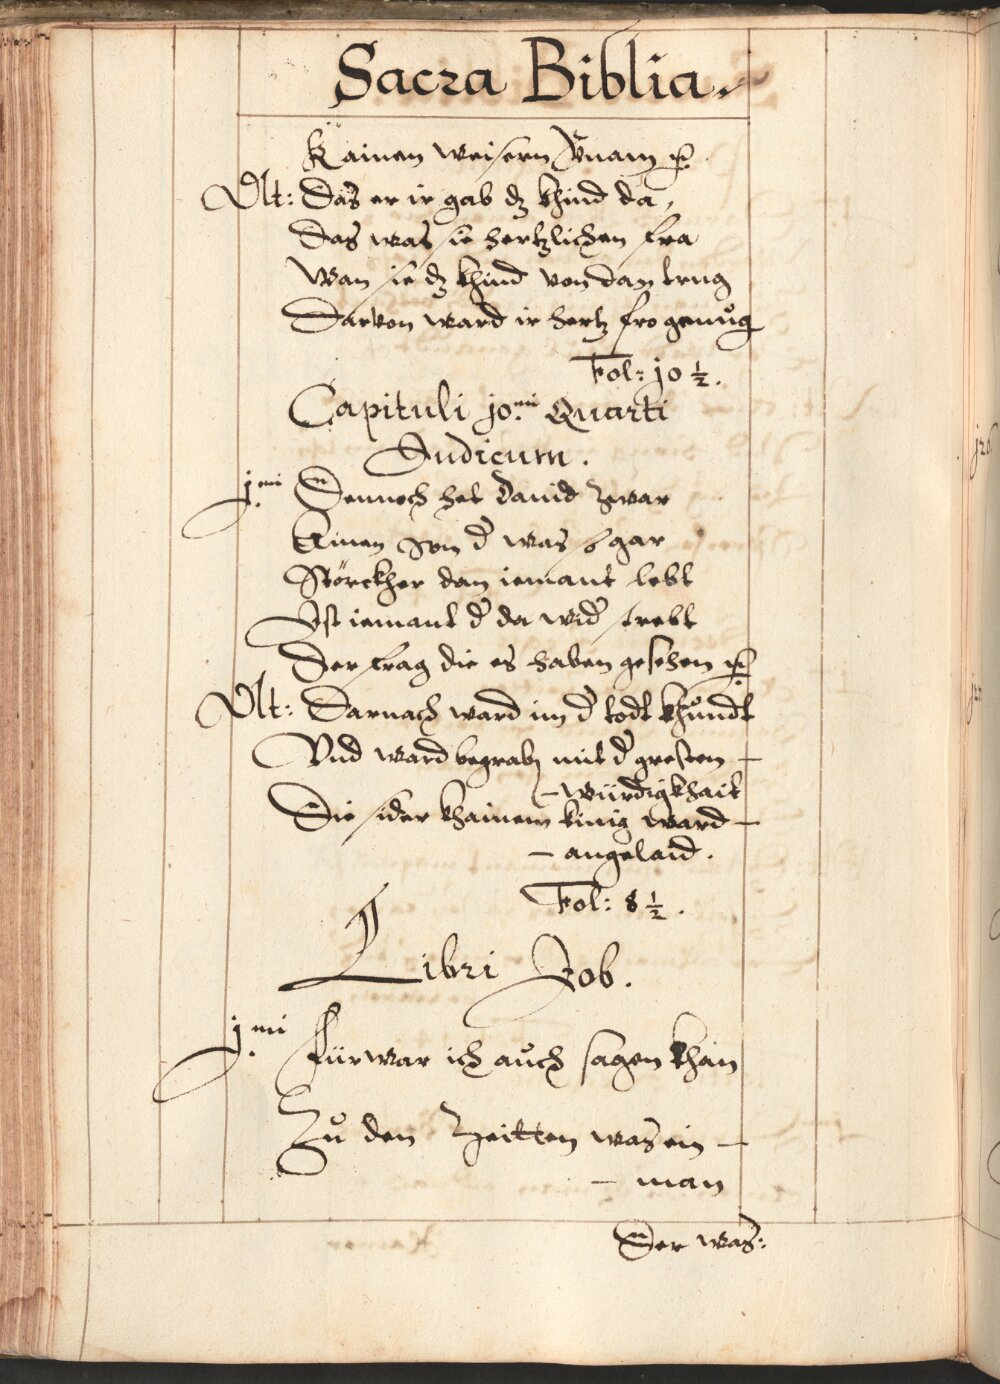 Sacra Biblia.
Kainen weisern
Vlt: Das er ir gab dz khind da,
Das was sie hertzlichen fra
Wan sie dz khind von dan trug
Darvon ward ir hertz fro genůg
Fol: 10 ½.
Capituli 10.mi Quarti
Iudicum.
1.mi Dennoch het Dauid zwar
Ainen Son d' was b gar
Störckher dan iemant lebt
Ist iemant d' da wid' strebt
Der frag die es haben gesehen
Vlt: Darnach ward im d' todt khůndt
Vnd ward begrabn mit d' gresten –
– würdigkhait
Die sider khainem kinig ward –
– angelaid.
Fol: 8 ½.
Libri Job.
1.mi Fürwar ich aůch sagen khan
Zů den Zeitten was ein –
– man
Der was: